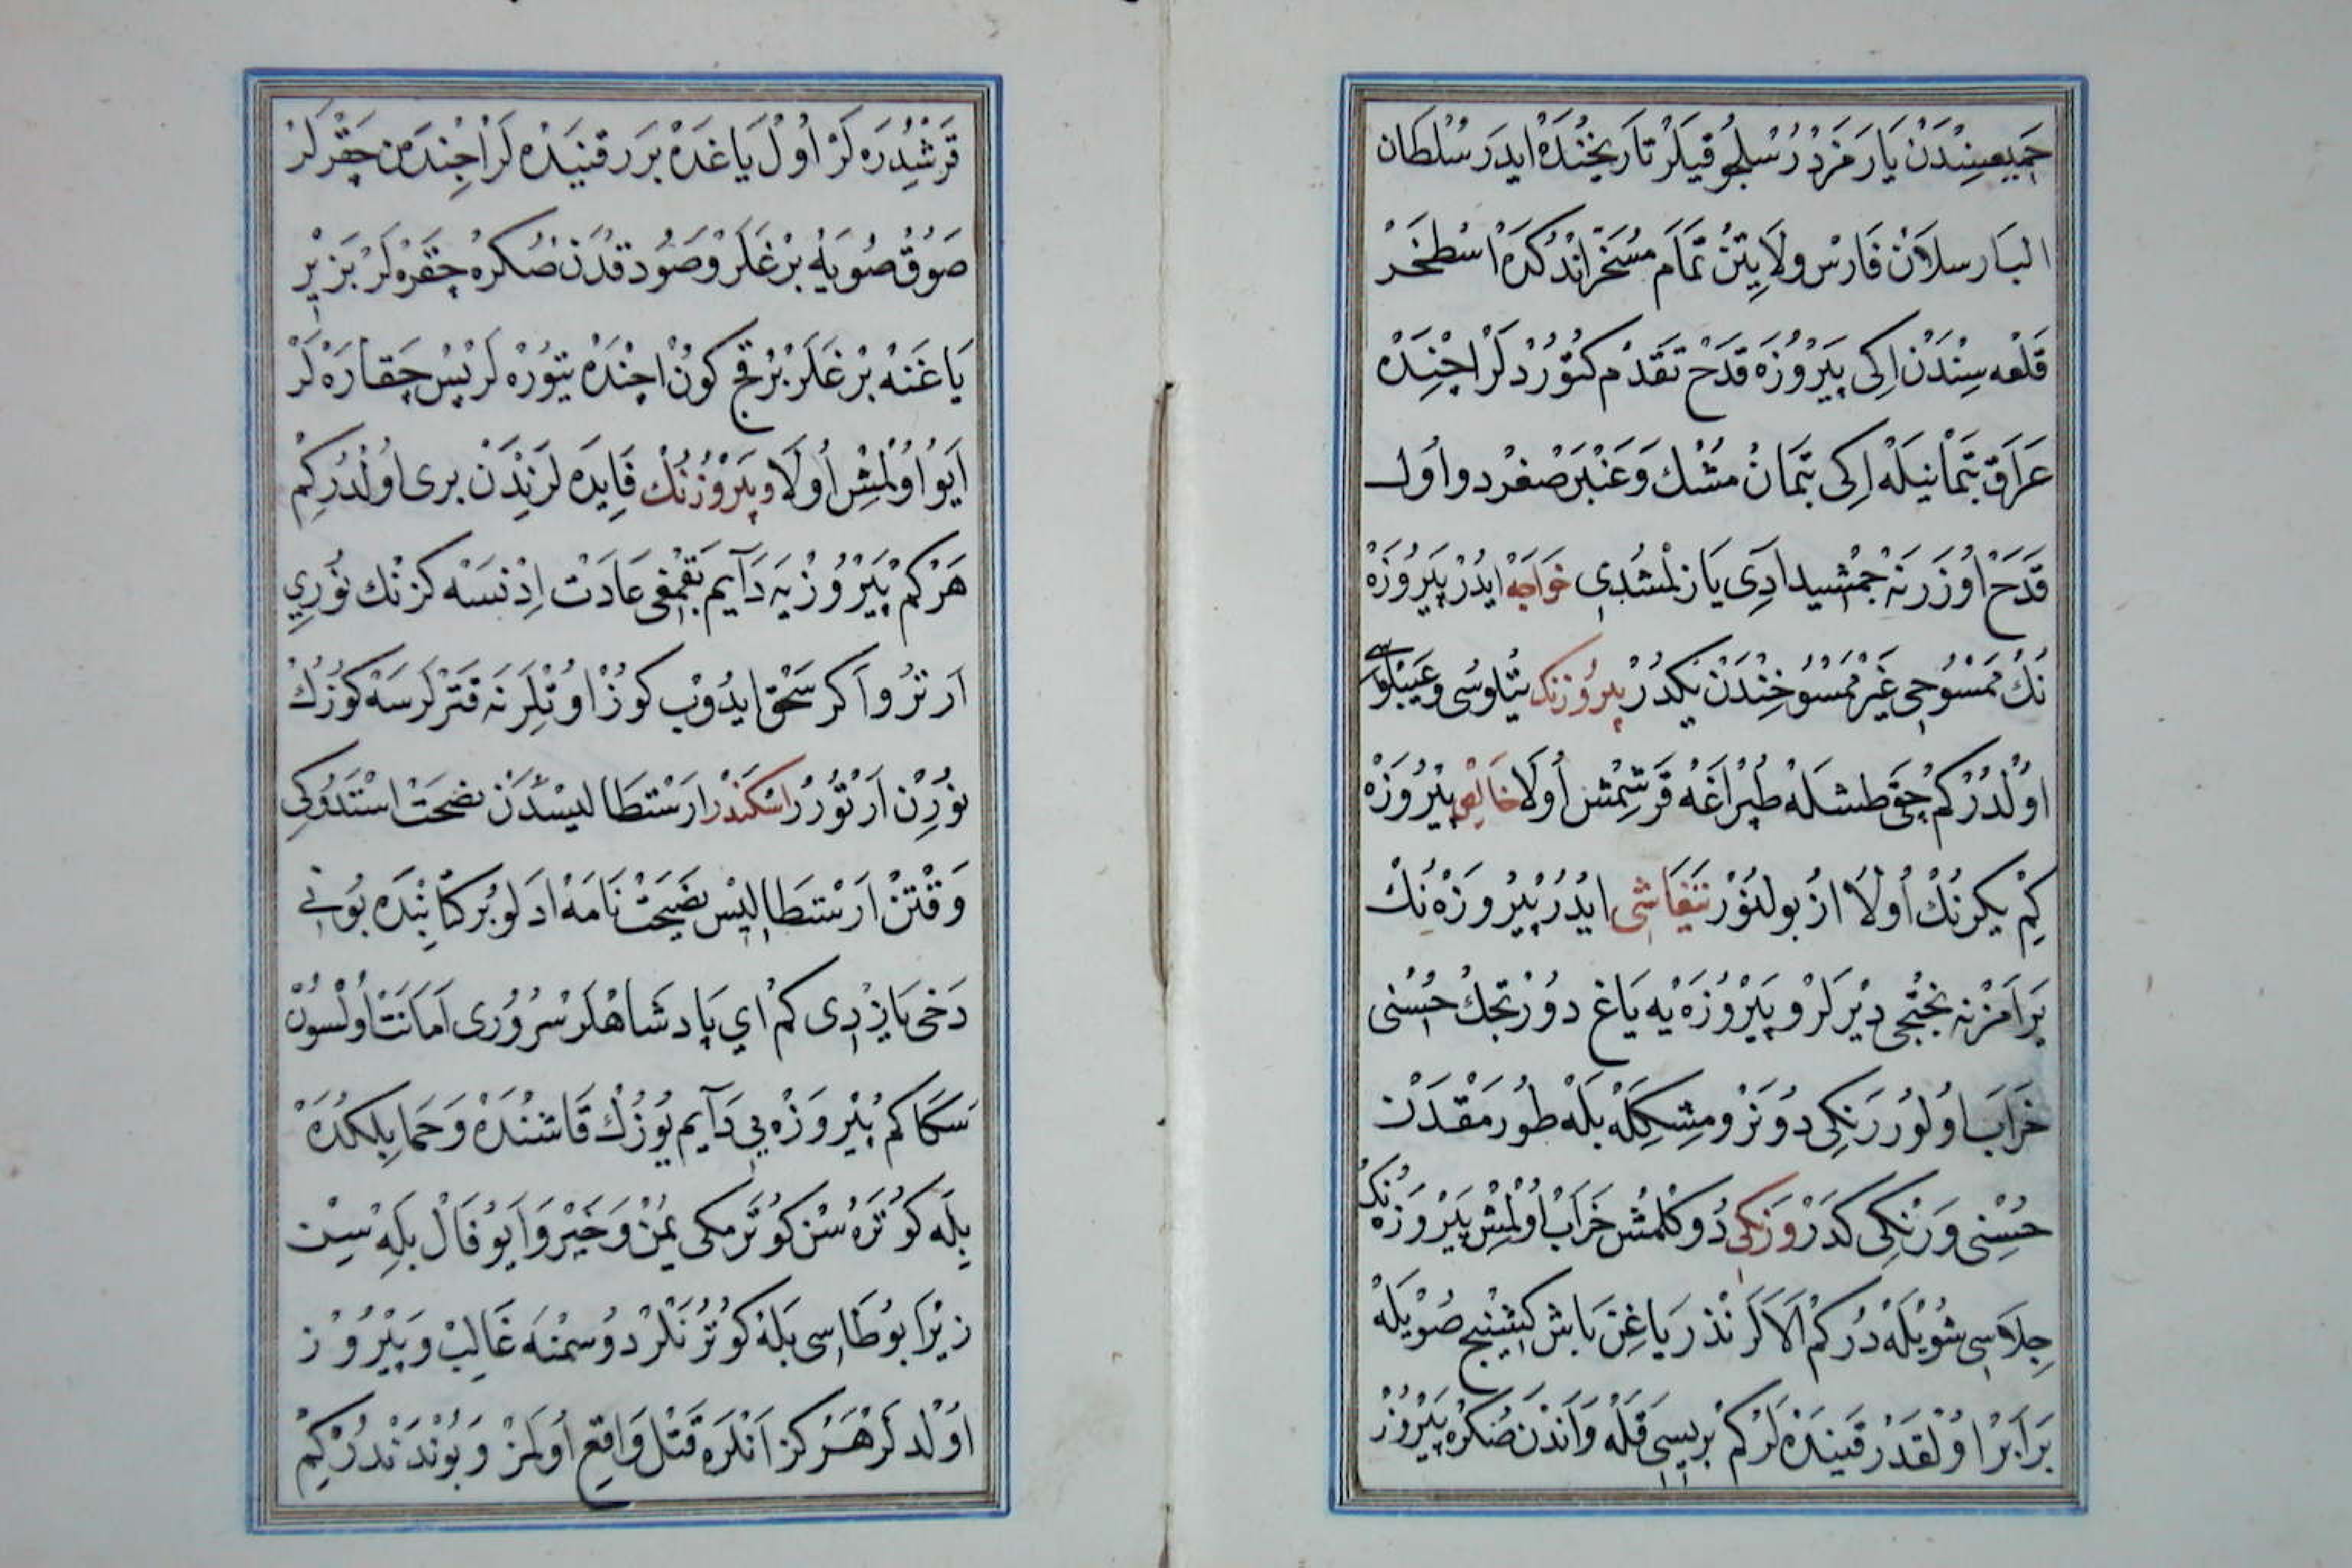 جميعسِنْدَنْ يَارَمَزدرْ سلجُوقيلَرْ تَاريخنْدَهْ ايدر سُلْطَان
البَارسلاَنْ فَارسْ ولَايتِنْ تَمَامْ مُسَخّرْ اندُكدَهْ اسْطخَرْ
قَلْعه سِنْدَنْ اِكى پَيْرُوزَه قَدَحْ تَقَدمْ كتُوُردِلَرْ اچِنْدَهْ
عِرَاقْ بَتمَانيلَهْ اِكى بَتمَانْ مشْكْ وَعَنْبَرْ صغرْدى و اول
قَدَحْ اوُزَرِنَهْ جَمْشيد ادِى يَازلْمشْدِى خوَاجَهْ ايدُرْ پَيْروُزَهْ
نُكْ مَمْسُوحى غَيْر مَمْسُوحِنْدَنْ يكدُرْ پَيرُوزنك يتلوسى وعَيبلوسى
اوُلْدُرْ كمْ چِقْ طشلَهْ طُپْرَاغَهْ قَرشْمشْ اُولَا خَالِص پَيْرُوزَهْ
كِمْ يكرنكْ اُولَا ازْ بولنُورْ تَنفَاشى ايدُرْ پَيْرُوزَهْ نكْ
يَرَامَزنه نجنجى ديْرلَرْ و پَيْرُوزَهْ يه يَاغْ دوُزيجكْ حُسْنى
خَرَابْ اُولُورْ رَنكى دوُنَرْ و مشكِلَهْ بلَهْ طُورمقْدَنْ
حُسْنى وَ رَنكى كدَرْ وَ رنكى دُوكلمشْ خَرَابْ اُولْمشْ پَيْرُوزَهْ نُكْ
جِلاَسِى شُويْلَهْ دُرْ كمْ الاَلَرْ نذر يَاغِنْ يَاشْ كشْنيج صُويْلَهْ
بَرَابَرْ اوُلْقَدَرْ قَينَدَهْ لَرْ كمْ بريسى قَلَهْ وَ اَندْنْ صُكرَهْ پَيْرُوزْ
قَرشْدِرَه لَرْ اُولْ يَاغَدَهْ بَرَرْ قنيَدَه لَرْ اچِنْدَنْ چقَرَلَرْ
صَوُقْ صُويَهْ بَرغَلَرْ و صَوُدقدَنْ صُكرَهْ چِقَرَهْ لَرْ بَزيرْ
يَاغنَهْ بَرغَلَرْ بَرْ قچْ كُونْ اچِنْدَهْ يتورَهْ لَرْ پسْ چقَارَهْ لَرْ
اَيُو اُولْمشْ اُولَا و پَيْرُوزَنُكْ فَايدَه لَرنْدَنْ برى اُولْدُرْ كمْ
هَرْ كمْ پَيْرُوزَيَه دَآيم بَقمغى عَادَتْ اِدْنسَهْ كزنكْ نُورِي
اَرتَرْ و اَكرْ سَحْق ايدُوبْ كُوزْ اوُتلَرنَه قَتَرْلَرسَهْ كُوزُكْ
نُورِنْ اَرْتُورُرْ اسكَنْدَرْ ارَسْتطَاليسْدَنْ نصيحَتْ استَدُوكى
وَقْتنْ اَرَسْتطَاليسْ نَصيحَتْ نَامَهْ ادلُو بُركتَابنْدَه بُونى
دَخى يَازدِى كمْ اي پَادشَاهلَرْ سرُوُرى اَمَانَتْ اُولْسُونْ
سَكَا كمْ پَيْرُوزَهْ يى دَآيم يُوزُكْ قَاشنْدَهْ وَ حَمَايلكدَهْ
بلَه كُوتُرَهْ سنْ كُوتُرمكى يُمْنْ وَ خَيْرْ وَ اَيُو فَالْ بلَهْ سِنْ
زيْرَا بُو طَاسى بلَهْ كُوتُرنْلَرْ دُوسمْنَه غَالِبْ و پَيْرُوزْ
اوُلدلَرْ هَرْكزْ اَنلَرَهْ قَتْلْ وَاقعْ اُولْمَزْ وَ بُونْدَنْدُرْ كِمْ